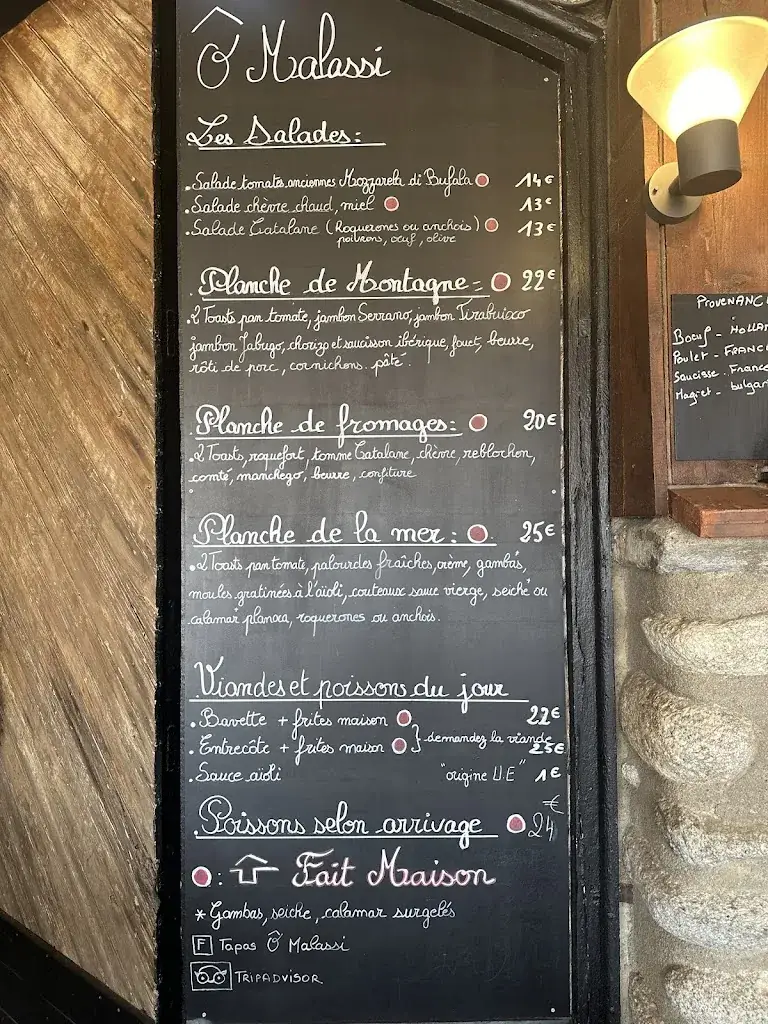 Ô Malassi
Les Salades:
.Salade tomates anciennes Mozzarela di Bufala 14€
.Salade chèvre chaud, miel 13€
.Salade Catalane (Roquerones ou anchois) 13€
poivrons, oeuf, olive
.Planche de Montagne: 22€
.2 Toasts pan tomate, jambon Serrano, jambon Tirabuixo
jambon Jabugo, chorizo et saucisson ibérique, fouet, beurre,
rôti de porc, cornichons. pâté.
.Planche de fromages: 20€
.2 Toasts, roquefort, tomme Catalane, chèvre, reblochon,
comté, manchego, beurre, confiture
.Planche de la mer: 25€
.2 Toasts pan tomate, palourdes fraîches, crème, gambas,
moules gratinées à l'aïoli, couteaux sauce vierge, seiche ou
calamar planxa, roquerones ou anchois.
Viandes et poissons du jour
.Bavette + frites maison 22€
.Entrecôte + frites maison } demandez la viande 25€
.Sauce aïoli "origine U.E" 1€
.Poissons selon arrivage 24€
: Fait Maison
* Gambas, seiche, calamar surgelés
F Tapas Ô Malassi
TRIPADVISOR
PROVENANC
Boeuf - HOLLAN
Poulet - FRANC
Saucisse - France
Magret - bulgar